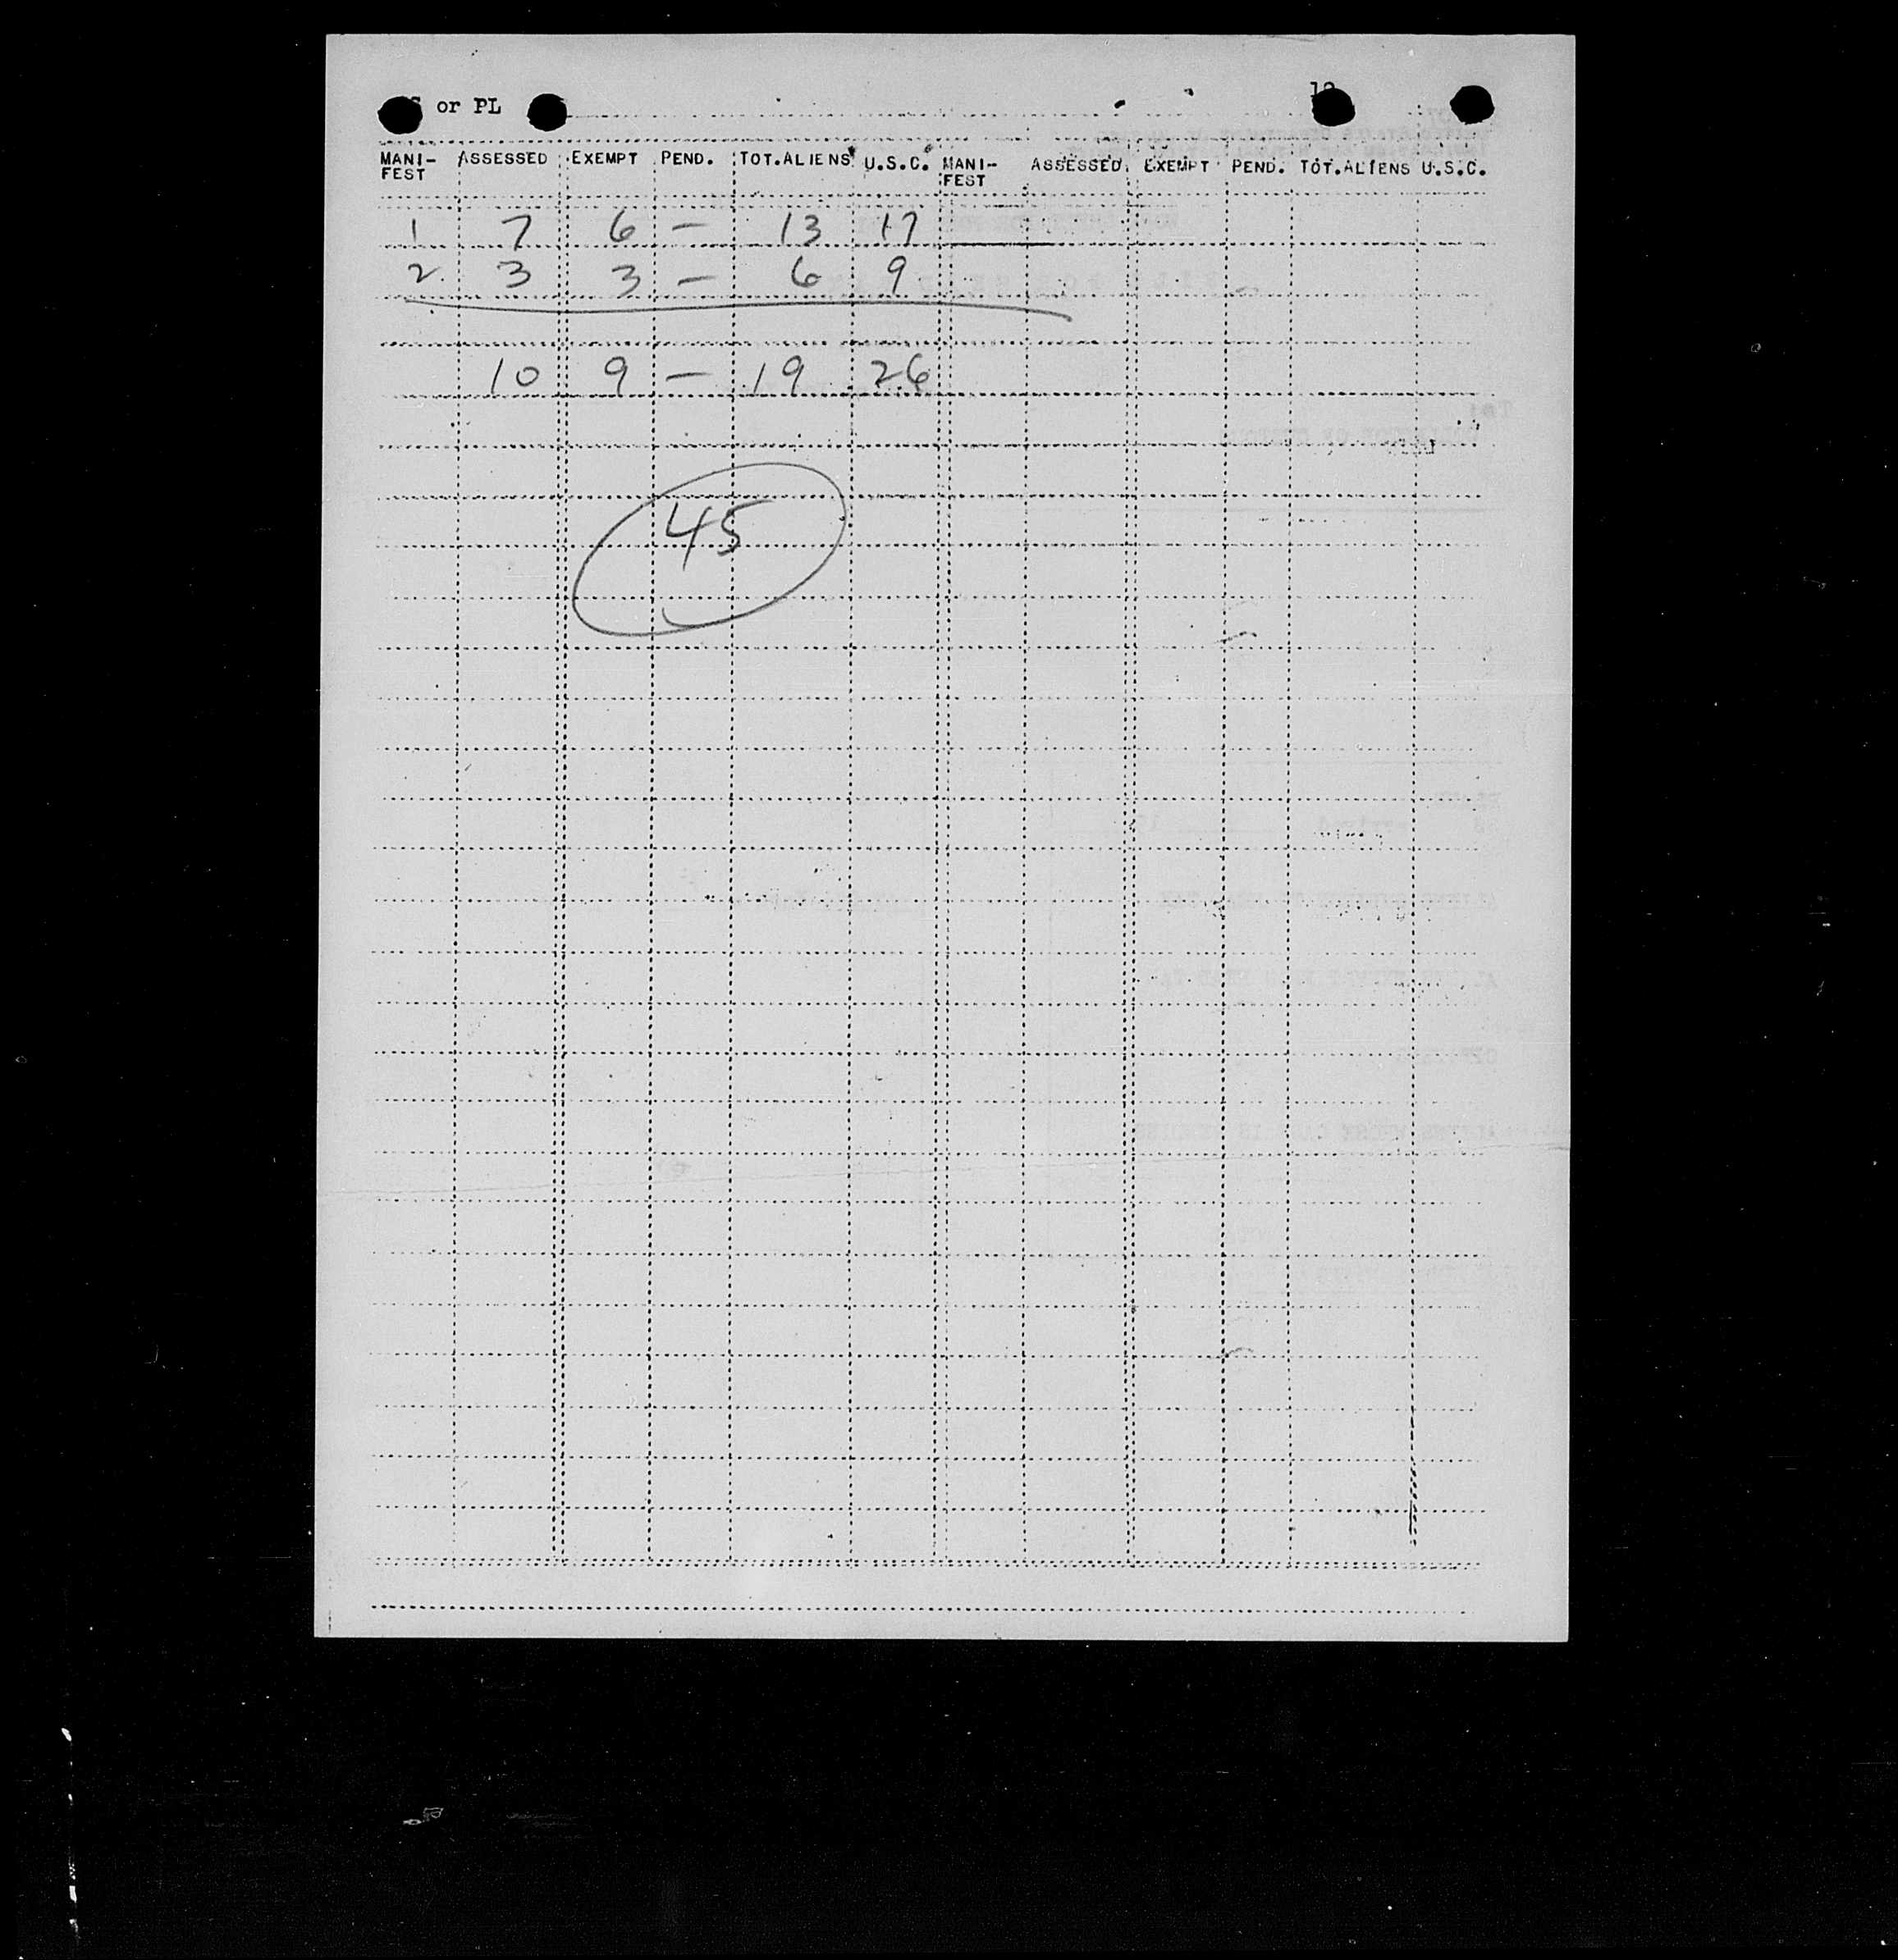 or PL
MANI-FEST ASSESSED EXEMPT PEND. TOT.ALIENS U.S.C. MANI-FEST ASSESSED EXEMPT PEND. TOT.ALIENS U.S.C.
1 7 6 — 13 17
2 3 3 — 6 9
10 9 — 19 26
45